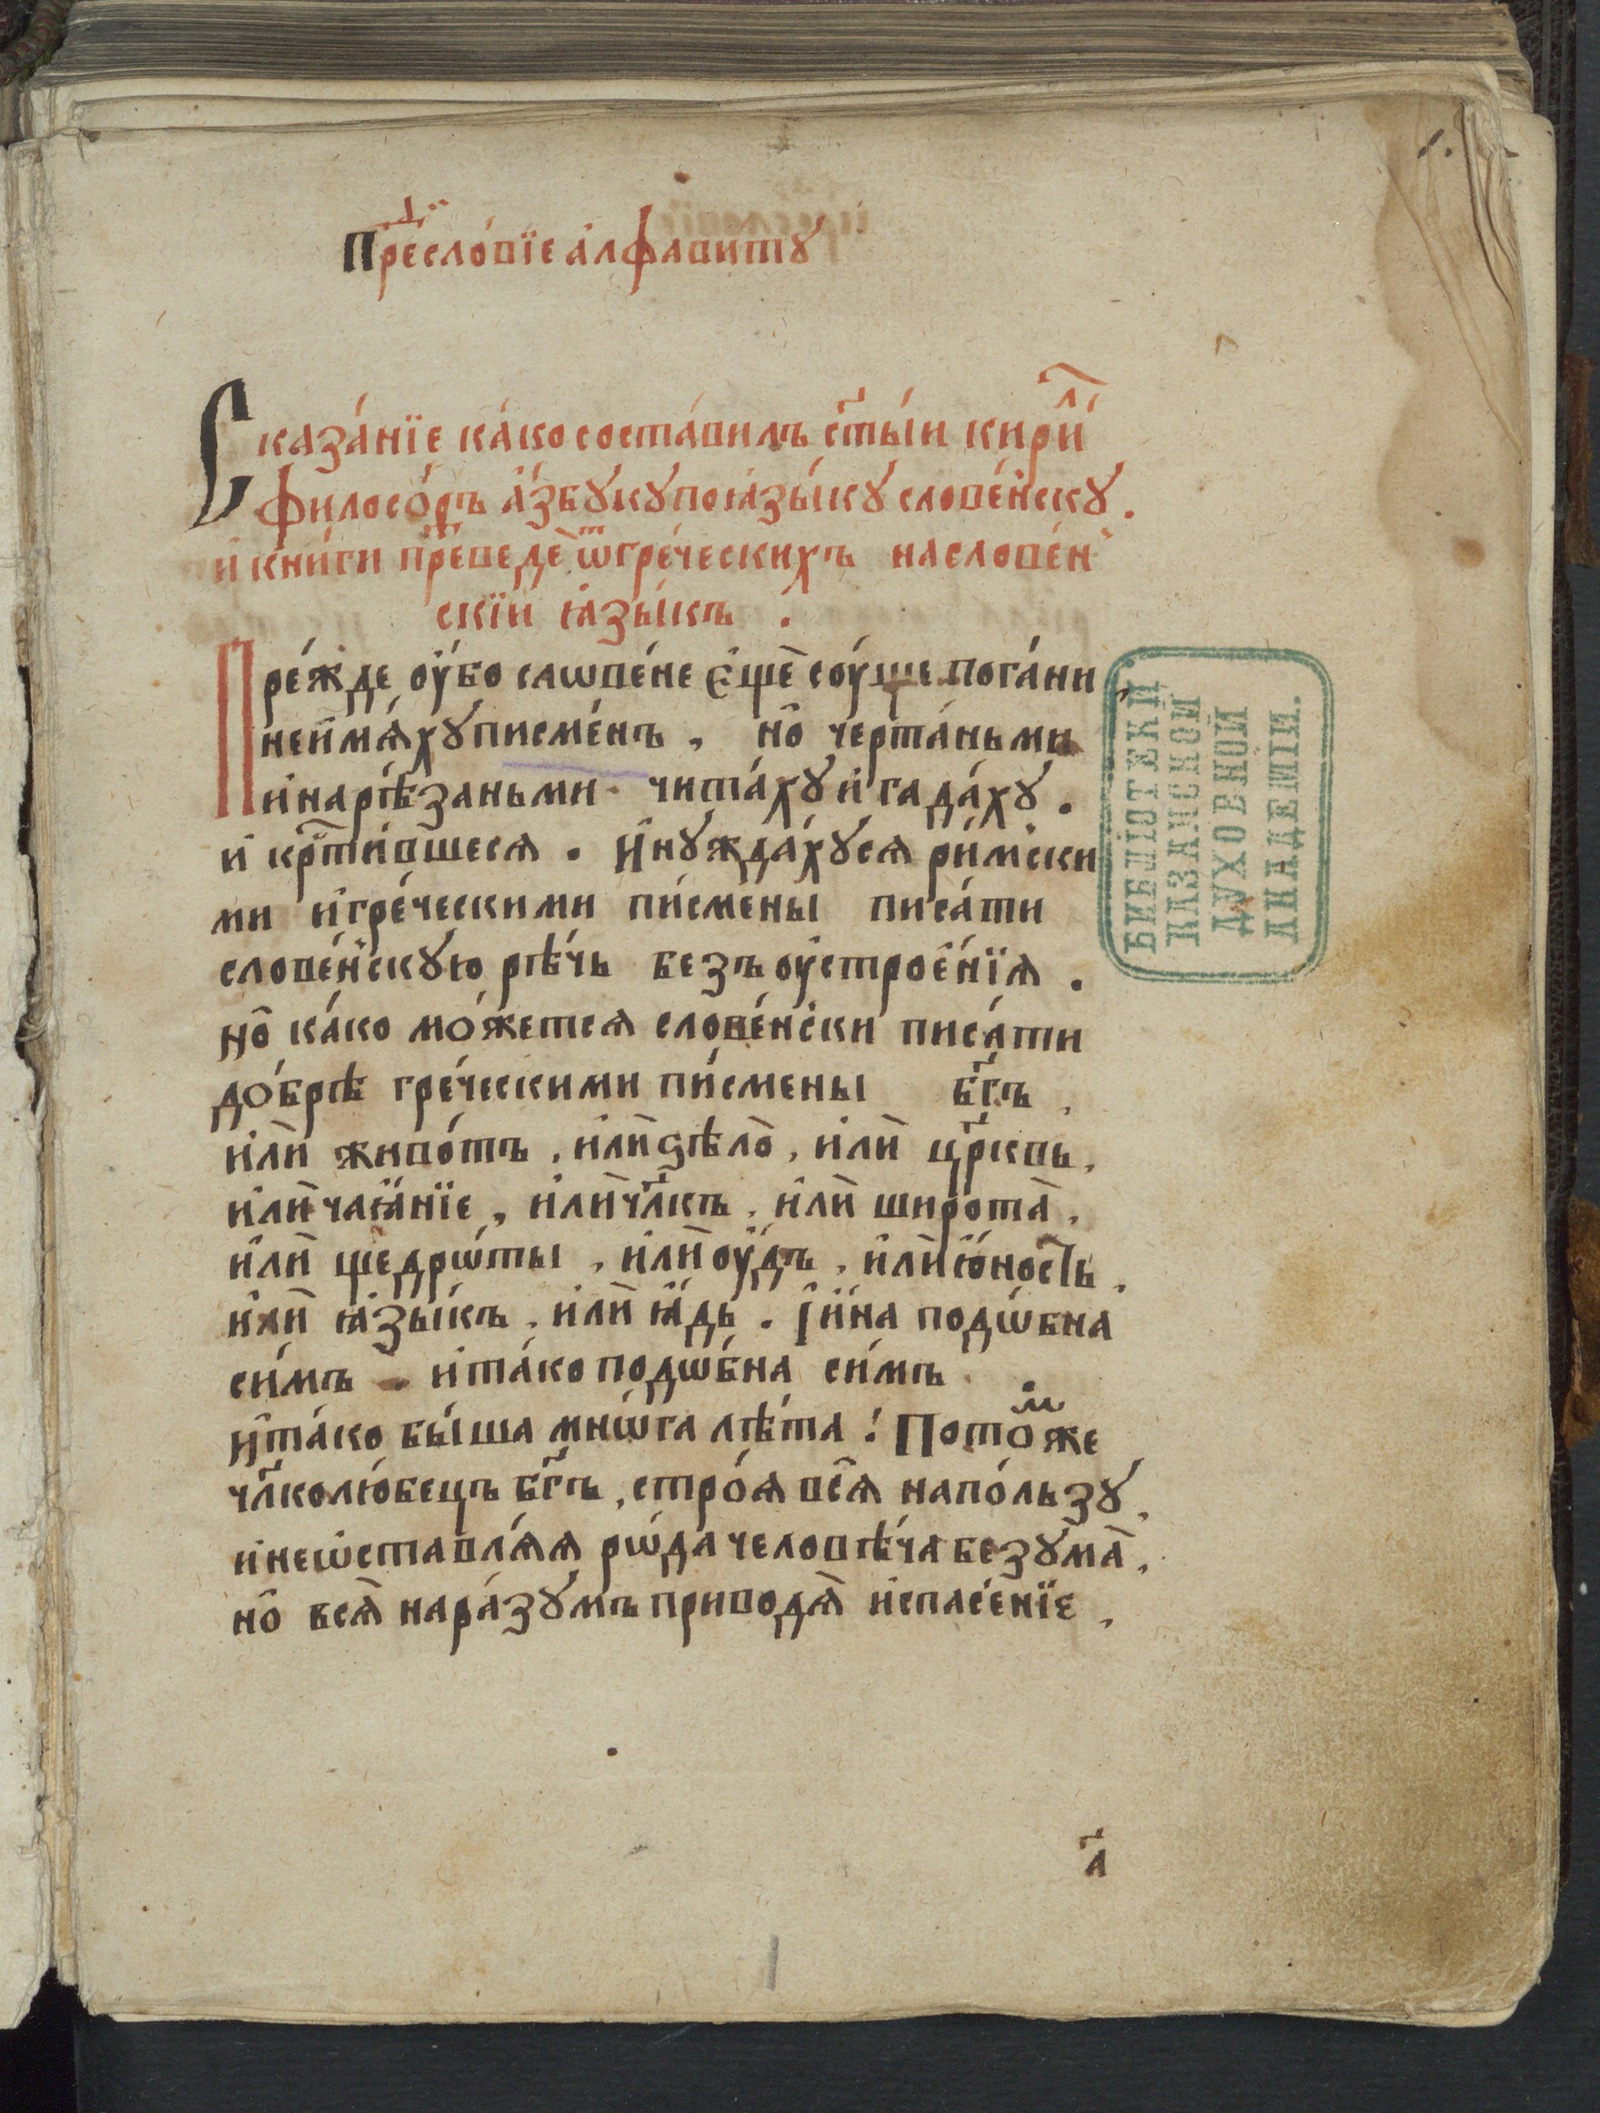 Пре́дсло́вїе а҆лфави́тꙋ
Сказа́нїе ка́ко соста́вилъ ст҃ы́и кири́лъ
филосо́фъ а҆́збꙋкꙋ по ꙗ҆зы́кꙋ слове́нскꙋ.
и҆ кни́ги преведѐ ѿ гре́ческихъ на слове́н
скїи ꙗ҆зы́къ.
Пре́жде оу҆́бо слѡве́не є҆щѐ соу́ще пога́ни,
не и҆мѧ́хꙋ писме́нъ, но̀ черта́ньми
и҆ нарѣ́заньми чита́хꙋ и҆ гада́хꙋ.
и҆ кр҃ти́вшесѧ. И҆ нꙋжда́хꙋсѧ ри́мски
ми и҆ гре́ческими пи́смены писа́ти
слове́нскꙋю рѣ́чь безъ оу҆строе́нїѧ.
но̀ ка́ко мо́жетсѧ слове́нски писа́ти
до́брѣ гре́ческими пи́смены бг҃ъ,
и҆лѝ живо́тъ, и҆лѝ ѕѣло̀, и҆лѝ цр҃ковь,
и҆лѝ чаꙗ́нїе, и҆лѝ чл҃къ, и҆лѝ широта̀,
и҆лѝ щедрѡ́ты, и҆лѝ оу҆́дъ, и҆лѝ ю҆́ность,
и҆лѝ ꙗ҆зы́къ, и҆лѝ ꙗ҆́дь. І҆ и҆́на подѡ́бна
си́мъ и҆ та́ко подѡ́бна си́мъ.
И҆ та́ко бы́ша мнѡ́га лѣ́та: Пото́мже
чл҃колю́бецъ бг҃ъ, стро́ѧ всѧ̑ на по́льзꙋ,
и҆ не ѡ҆ставлѧ́ѧ рѡ́да человѣ́ча без̾ ꙋма̀,
но̀ всѧ̑ на ра́зꙋмъ приводѧ̀ и҆ спасе́нїе,
а҃
БИБЛІОТЕКИ
КАЗАНСКОЙ
ДУХОВНОЙ
АКАДЕМІИ.
1.
1